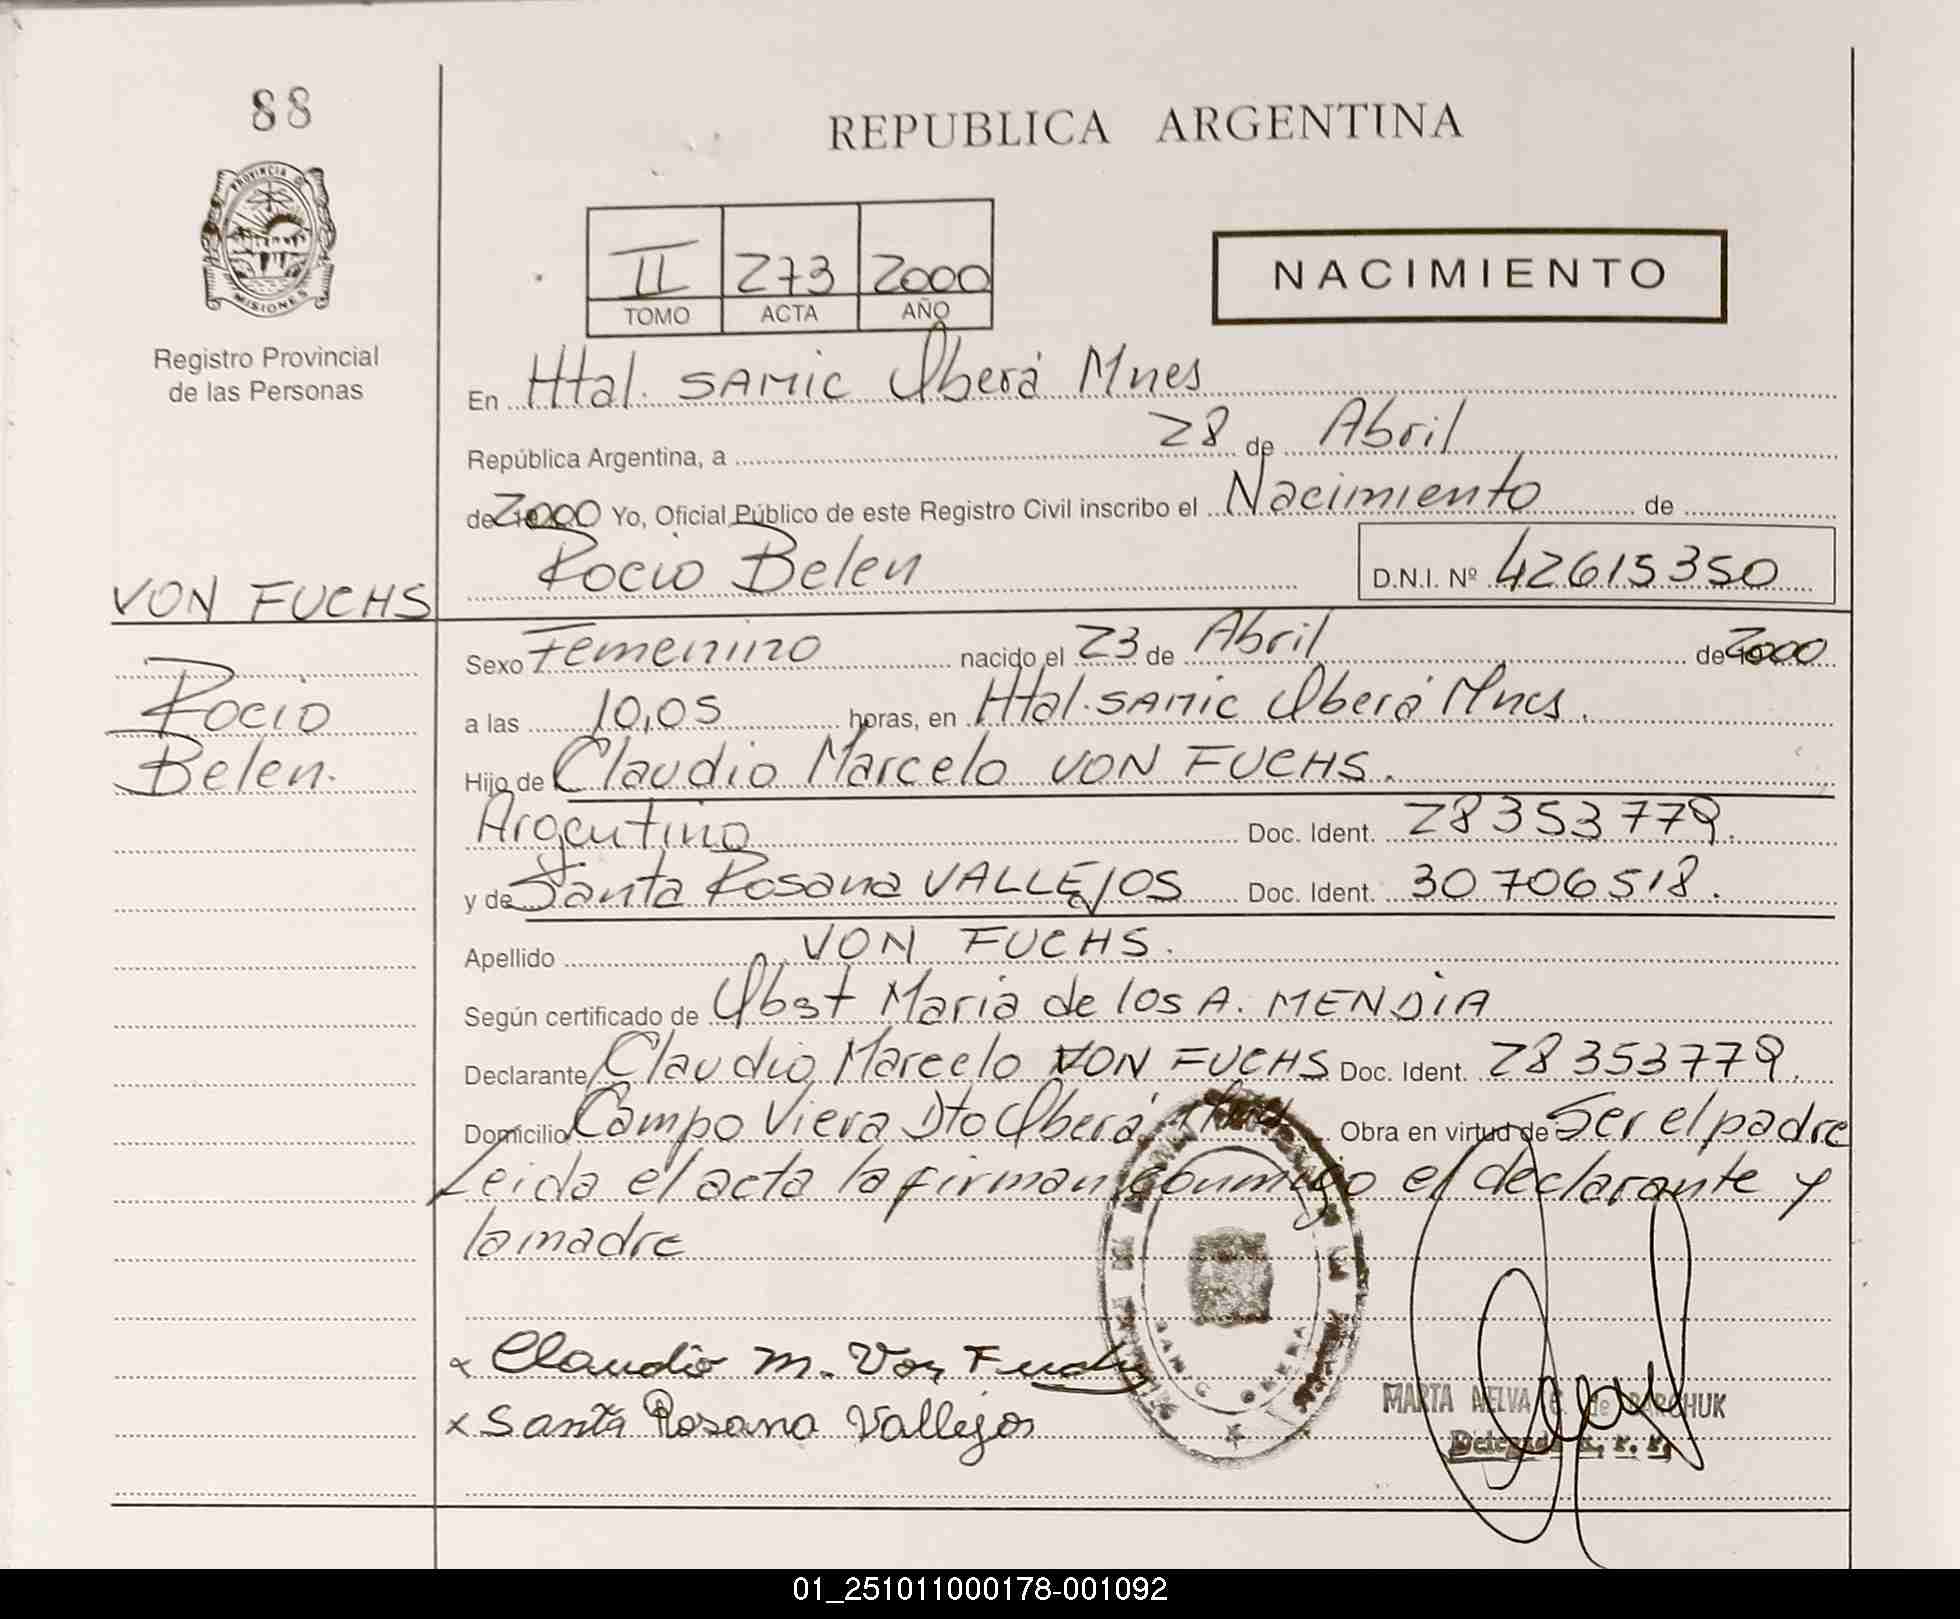 88
REPUBLICA ARGENTINA
PROVINCIA D
MISIONES
Registro Provincial
de las Personas
II 273 2000
TOMO ACTA AÑO
NACIMIENTO
En Htal. SAMIC Oberá Mnes
República Argentina, a 28 de Abril
de 2000 Yo, Oficial Público de este Registro Civil inscribo el Nacimiento de
Rocio Belen D.N.I. Nº 42615350
VON FUCHS
Rocio
Belen.
Sexo Femenino nacido el 23 de Abril de 2000
a las 10,05 horas, en Htal. SAMIC Oberá Mnes.
Hijo de Claudio Marcelo VON FUCHS.
Argentino Doc. Ident. 28353779.
y de Santa Rosana VALLEJOS Doc. Ident. 30706518.
Apellido VON FUCHS.
Según certificado de Obst Maria de los A. MENDIA
Declarante Claudio Marcelo VON FUCHS Doc. Ident. 28353779.
Domicilio Campo Viera Dto Oberá Obra en virtud de Ser el padre
Leida el acta la firman conmigo el declarante y
la madre
x Claudio M. Von Fuchs
x Santa Rosana Vallejos
MARTA NELVA
01_251011000178-001092